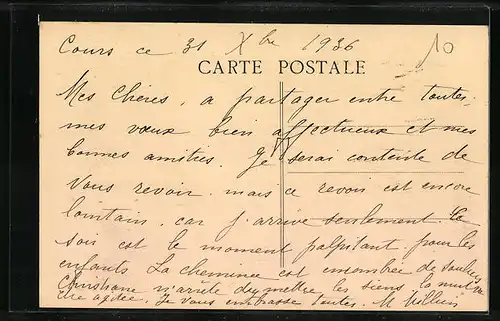 Cours ce 31 Xbre 1936
10
CARTE POSTALE
Mes Chères, a partager entre toutes
mes vœux bien affectueux et mes
bonnes amitiés. Je serai contente de
vous revoir mais ce revoir est encore
lointain, car j'arrive seulement. Ce
soir est le moment palpitant pour les
enfants La cheminée est encombrée de souliers
Christiane n'arrête d'y mettre les siens la nuit va
être agitée. Je vous embrasse toutes. M